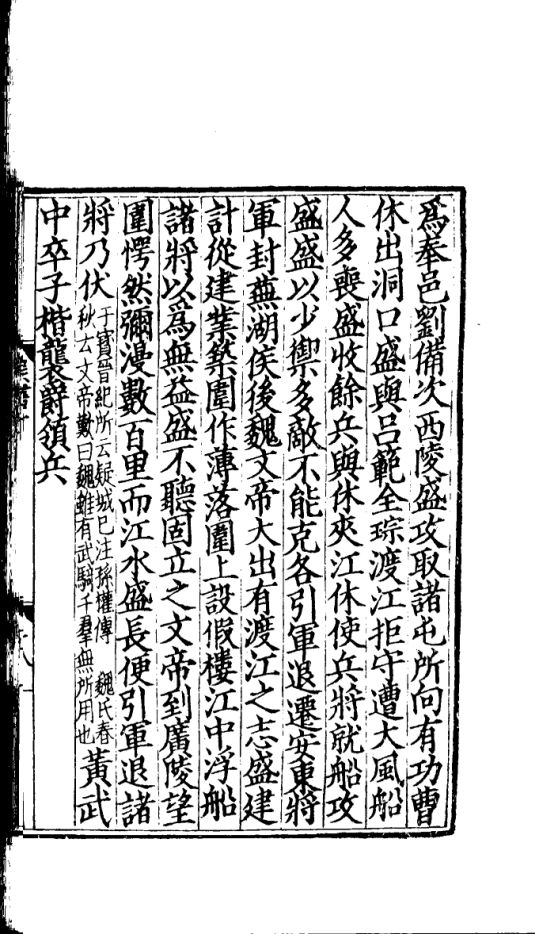 爲奉邑劉備次西陵盛攻取諸屯所向有功曹
休出洞口盛與呂範全琮渡江拒守遭大風船
人多喪盛收餘兵與休夾江休使兵將就船攻
盛盛以少禦多敵不能克各引軍退遷安東將
軍封蕪湖侯後魏文帝大出有渡江之志盛建
計從建業築圍作薄落圍上設假樓江中浮船
諸將以爲無益盛不聽固立之文帝到廣陵望
圍愕然彌漫數百里而江水盛長便引軍退諸
將乃伏
于寳晉紀所云疑城已注孫權傳 魏氏春
秋云文帝歎曰魏雖有武騎千羣無所用也
黃武
中卒子楷襲爵領兵